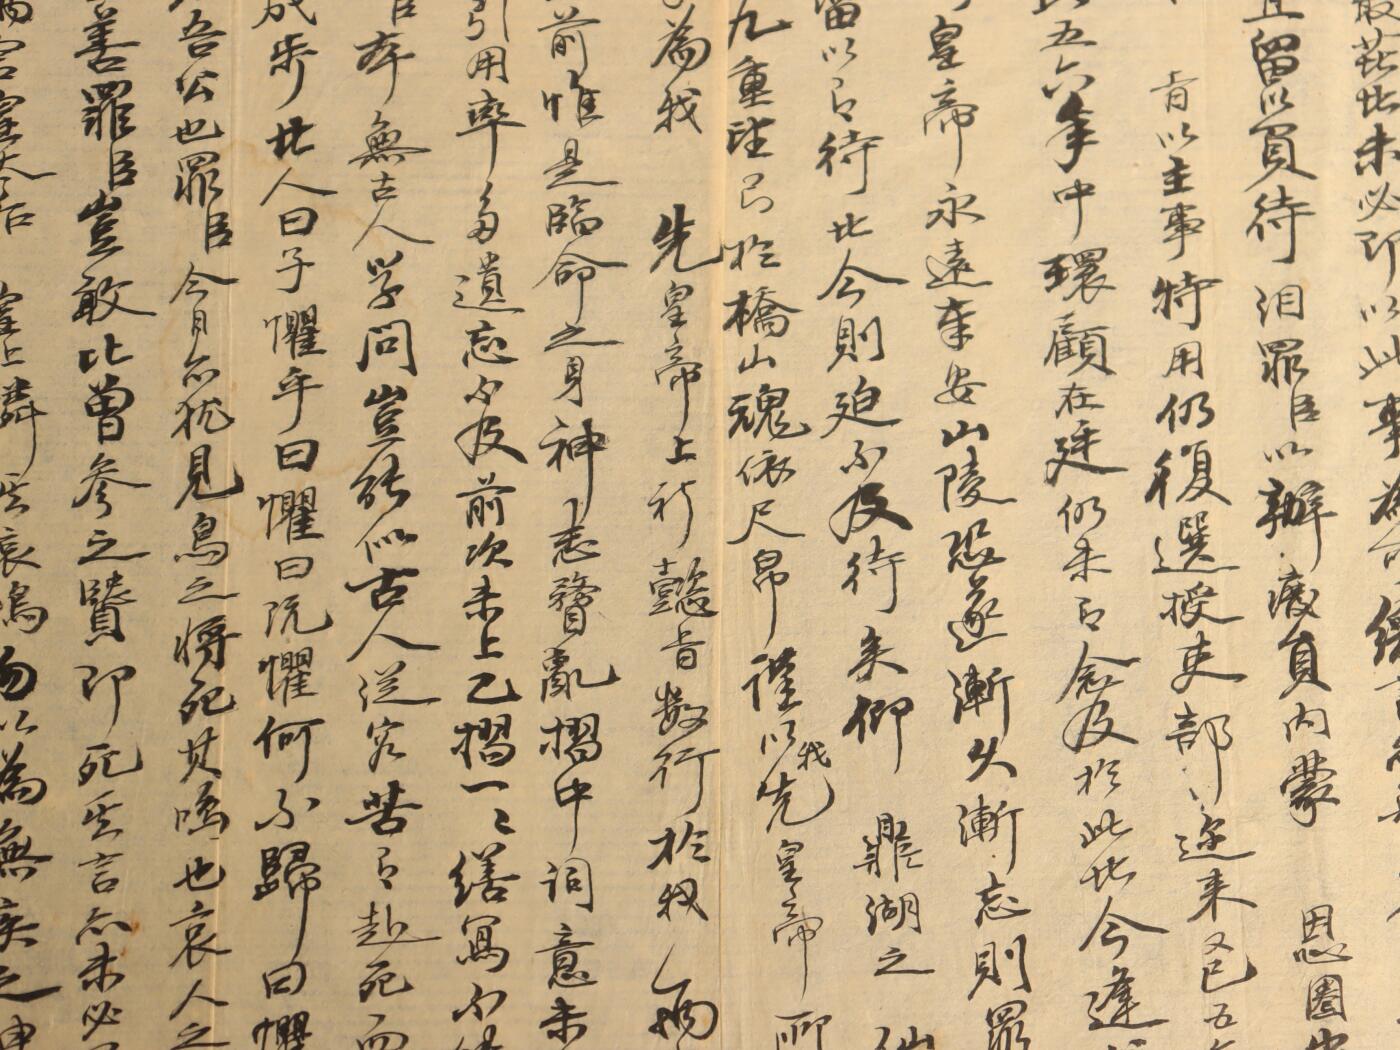 最茲比未必即以此事為可
且留以員待泪罪臣以辦廢員内蒙 恩圏
旨以主事特用仍復選授吏部迩来又已五
五六年中環顧在廷仍未有念及於此比今逢
皇帝永遠奉安山陵恐遂漸久漸忘則罪
留以有待比今則迫不及待矣仰 鼎湖之仙
九重望已於橋山魂依尺帛謹以我先皇帝所
為我 先皇帝上祈懿旨数行於我
前惟是臨命之身神志瞀亂摺中詞意未
引用率多遺忘不及前次未上之摺一二繕寫不
奔無古人学問豈能似古人從容昔有赴死而
成步此人曰子懼乎曰懼曰既懼何不歸曰懼
吾公也罪臣今日亦犹見鳥之将死其鳴也哀人之
善罪臣豈敢比曾參之賢即死其言亦未必
哀鳴勿以為無疾之呻